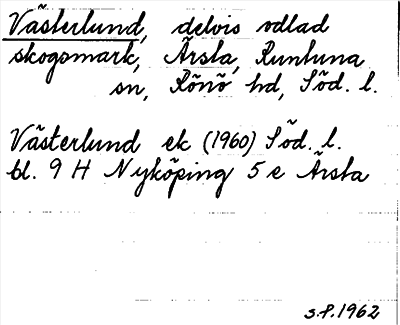 Västerlund, delvis odlad
skogsmark, Årsta, Runtuna
sn, Rönö hd, Söd. l.
Västerlund ek (1960) Söd. l.
bl. 9 H Nyköping 5 e Årsta
S.P. 1962